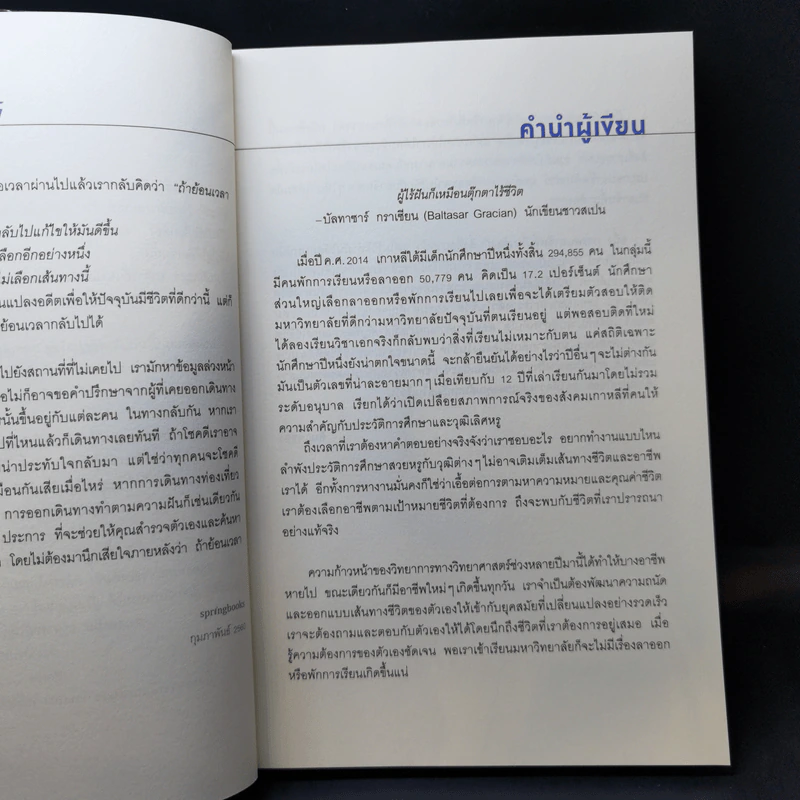 อเวลาผ่านไปแล้วเรากลับคิดว่า "ถ้าย้อนเวลา
ลับไปแก้ไขให้มันดีขึ้น
ลือกอีกอย่างหนึ่ง
ม่เลือกเส้นทางนี้
นแปลงอดีตเพื่อให้ปัจจุบันมีชีวิตที่ดีกว่านี้ แต่ก็
ย้อนเวลากลับไปได้
ไปยังสถานที่ที่ไม่เคยไป เรามักหาข้อมูลล่วงหน้า
อไม่ก็อาจขอคำปรึกษาจากผู้ที่เคยออกเดินทาง
งนั้นขึ้นอยู่กับแต่ละคน ในทางกลับกัน หากเรา
ปที่ไหนแล้วก็เดินทางเลยทันที ถ้าโชคดีเราอาจ
น่าประทับใจกลับมา แต่ใช่ว่าทุกคนจะโชคดี
มือนกันเสียเมื่อไหร่ หากการเดินทางท่องเที่ยว
การออกเดินทางทำตามความฝันก็เช่นเดียวกัน
ประการ ที่จะช่วยให้คุณสำรวจตัวเองและค้นหา
โดยไม่ต้องมานึกเสียใจภายหลังว่า ถ้าย้อนเวลา
springbooks
กุมภาพันธ์
คำนำผู้เขียน
ผู้ไร้ฝันก็เหมือนตุ๊กตาไร้ชีวิต
–บัลทาซาร์ กราเซียน (Baltasar Gracian) นักเขียนชาวสเปน
เมื่อปี ค.ศ. 2014 เกาหลีใต้มีเด็กนักศึกษาปีหนึ่งทั้งสิ้น 294,855 คน ในกลุ่มนี้
มีคนพักการเรียนหรือลาออก 50,779 คน คิดเป็น 17.2 เปอร์เซ็นต์ นักศึกษา
ส่วนใหญ่เลือกลาออกหรือพักการเรียนไปเลยเพื่อจะได้เตรียมตัวสอบให้ติด
มหาวิทยาลัยที่ดีกว่ามหาวิทยาลัยปัจจุบันที่ตนเรียนอยู่ แต่พอสอบติดที่ใหม่
ได้ลองเรียนวิชาเอกจริงก็กลับพบว่าสิ่งที่เรียนไม่เหมาะกับตน แค่สถิติเฉพาะ
นักศึกษาปีหนึ่งยังน่าตกใจขนาดนี้ จะกล้ายืนยันได้อย่างไรว่าปีอื่นๆ จะไม่ต่างกัน
มันเป็นตัวเลขที่น่าละอายมากๆ เมื่อเทียบกับ 12 ปีที่เล่าเรียนกันมาโดยไม่รวม
ระดับอนุบาล เรียกได้ว่าเปิดเปลือยสภาพการณ์จริงของสังคมเกาหลีที่คนให้
ความสำคัญกับประวัติการศึกษาและวุฒิเลิศหรู
ถึงเวลาที่เราต้องหาคำตอบอย่างจริงจังว่าเราชอบอะไร อยากทำงานแบบไหน
ลำพังประวัติการศึกษาสวยหรูกับวุฒิต่างๆ ไม่อาจเติมเต็มเส้นทางชีวิตและอาชีพ
เราได้ อีกทั้งการหางานมั่นคงก็ใช่ว่าเอื้อต่อการตามหาความหมายและคุณค่าชีวิต
เราต้องเลือกอาชีพตามเป้าหมายชีวิตที่ต้องการ ถึงจะพบกับชีวิตที่เราปรารถนา
อย่างแท้จริง
ความก้าวหน้าของวิทยาการทางวิทยาศาสตร์ช่วงหลายปีมานี้ได้ทำให้บางอาชีพ
หายไป ขณะเดียวกันก็มีอาชีพใหม่ๆ เกิดขึ้นทุกวัน เราจำเป็นต้องพัฒนาความถนัด
และออกแบบเส้นทางชีวิตของตัวเองให้เข้ากับยุคสมัยที่เปลี่ยนแปลงอย่างรวดเร็ว
เราจะต้องถามและตอบกับตัวเองให้ได้โดยนึกถึงชีวิตที่เราต้องการอยู่เสมอ เมื่อ
รู้ความต้องการของตัวเองชัดเจน พอเราเข้าเรียนมหาวิทยาลัยก็จะไม่มีเรื่องลาออก
หรือพักการเรียนเกิดขึ้นแน่